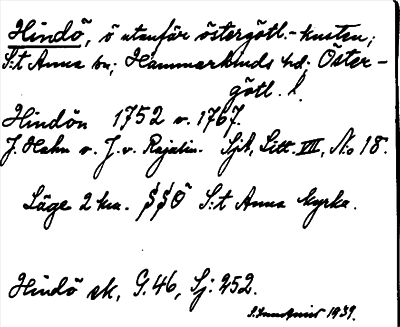 Hindö, ö utanför östergötl.-kusten;
S:t Anna sn; Hammarkinds hd; Öster-
götl. l.
Hindön 1752 o. 1767.
J. Hahn o. J. v. Rajalin. Sjk, Litt. VII, No 18.
Läge 2 km. SSÖ S:t Anna kyrka.
Hindö ek, G. 46, Sj: 252.
1939.